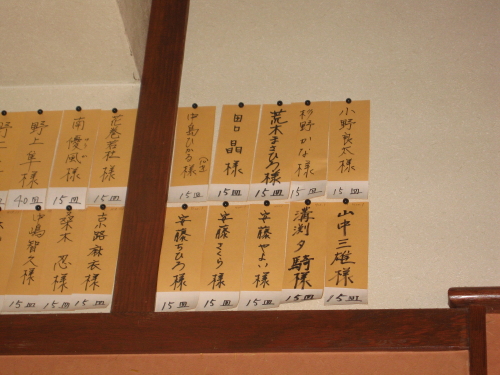 小野良太様
15皿
杉野かな様
15皿
荒木まさひろ様
15皿
田口晶様
15皿
中島ひかる様
15皿
山中三雄様
15皿
溝渕夕騎様
15皿
安藤やよい様
15皿
安藤さくら様
15皿
安藤ちひろ様
15皿
花巻若社様
15皿
南優風様
15皿
野上隼様
40皿
野上
京路麻衣様
15皿
桑木忍様
15皿
中嶋智久様
15皿